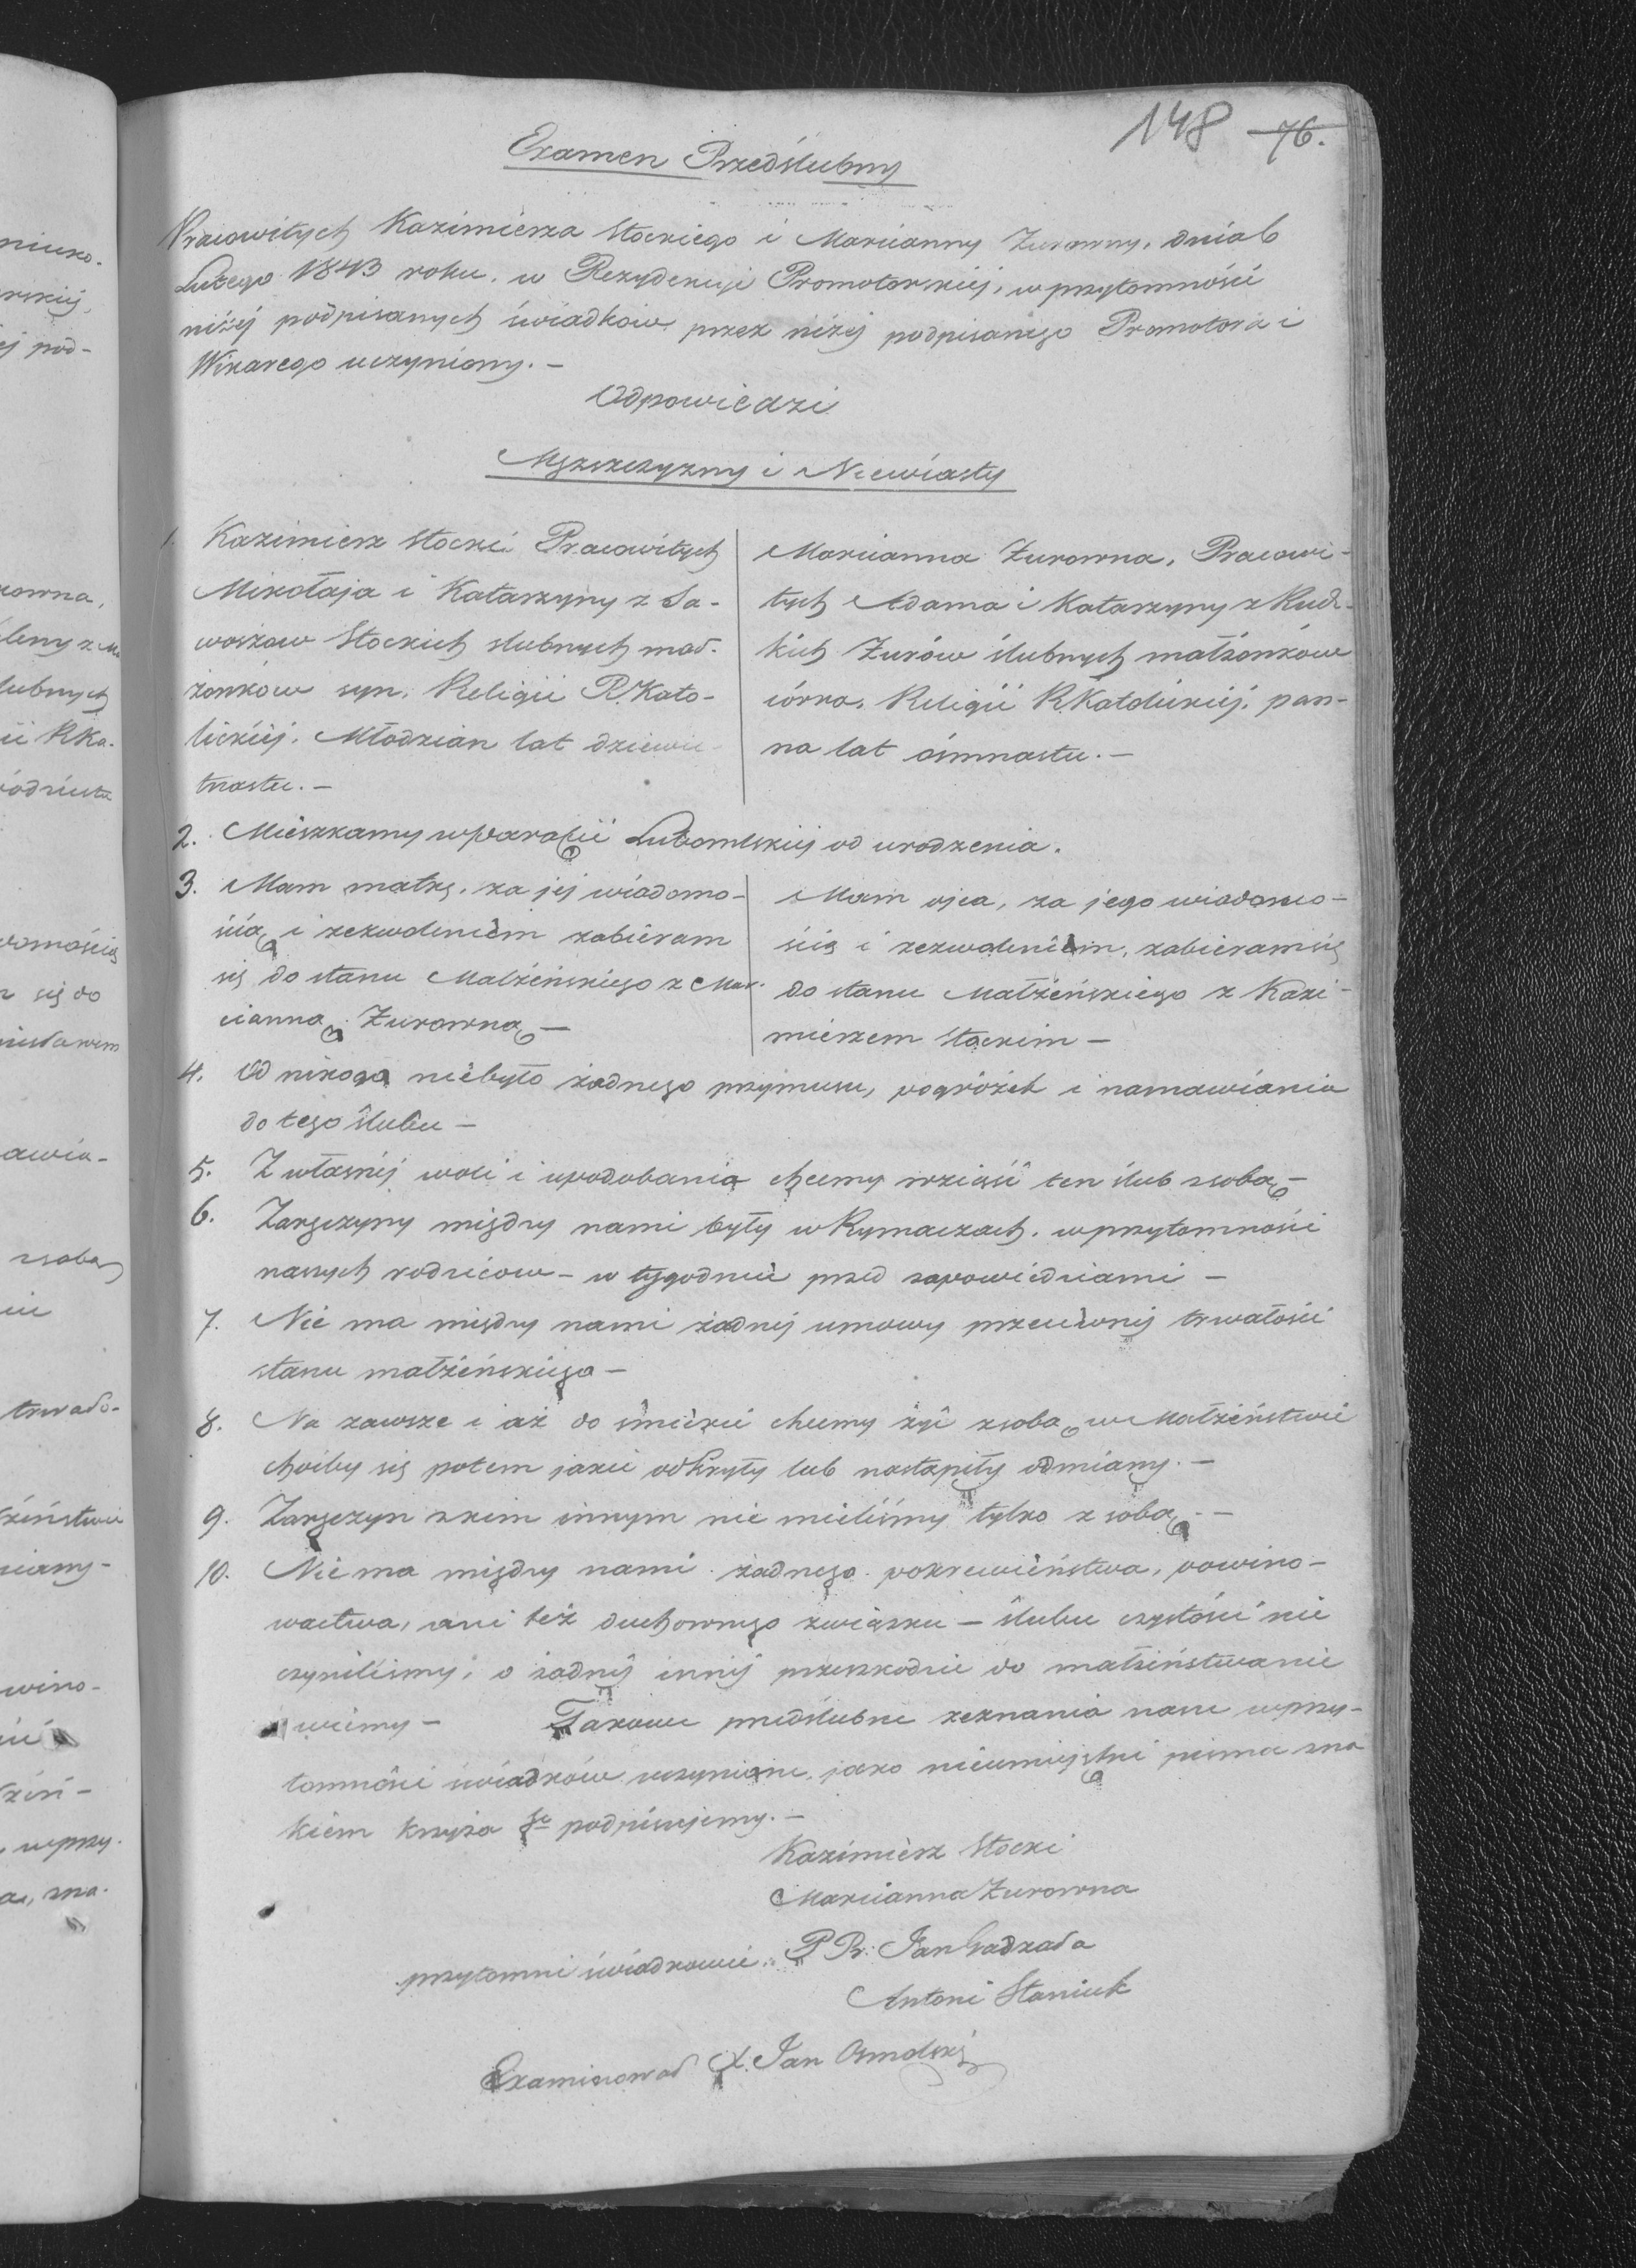 148 76.
Examen Przedślubny
Pracowitych Kazimierza Stockiego i Marcianny Żurowny, dnia 6
Lutego 1843 roku, w Rezydencyi Promotorskiej, w przytomności
niżej podpisanych świadków przez niżej podpisanego Promotora i
Wikarego uczyniony. —
Odpowiedzi
Mężczyzny i Niewiasty
1. Kazimierz Stocki Pracowitych
Mikołaja i Katarzyny z Sa-
woszow Stockich slubnych mał-
żonków syn, Religii R. Kato-
lickiej. Młodzian lat dziewie-
tnastu. —
Marcianna Żurowna, Pracowi-
tych Adama i Katarzyny z Rudz-
kich Żurów ślubnych małżonków
córka, Religii R. Katolickiej, pan-
na lat ośmnastu. —
2. Mieszkamy w parafii Lubomlskiej od urodzenia.
3. Mam matkę, za jej wiadomo-
ścią i zezwoleniem zabieram
się do stanu Małżeńskiego z Mar-
cianną Żurowną —
Mam ojca, za jego wiadomo-
ścią i zezwoleniem, zabieram się
do stanu Małżeńskiego z Kazi-
mierzem Stockim —
4. Od nikogo niebyło żadnego przymusu, pogróżek i namawiania
do tego ślubu —
5. Z własnéj woli i upodobania chcemy wziąść ten ślub z sobą —
6. Zaręczyny między nami były w Rymaczach, w przytomności
naszych rodziców — w tygodniu przed zapowiedziami —
7. Nie ma między nami żadnej umowy przeciwnej trwałości
stanu małżeńskiego —
8. Na zawsze i aż do śmierci chcemy żyć z sobą w Małżeństwie
choćby się potem jakie odkryły lub nastąpiły odmiany. —
9. Zaręczyn z kim innym nie mieliśmy tylko z sobą. —
10. Nie ma między nami żadnego pokrewieństwa, powino-
wactwa, ani też duchownego związku — ślubu czystości nie
czyniliśmy, o żadnej innej przeszkodzie do małżeństwa nie
wiemy — Takowe przedślubne zeznania nasze w przy-
tomności świadków uczynione, jako nieumiejętni pisma zna
kiem krzyża Sgo podpisujemy. —
Kazimierz Stocki
Marcianna Żurowna
przytomni świadkowie: PP: Jan
Antoni Staniuk
Examinował X. Jan Osmolski
niuko-
rskiej,
ej pod-
ślubnych
ii R Ka-
się do
awia-
z sobą
trwało-
żeństwie
miany —
wino-
żeń-
w przy-
zna-